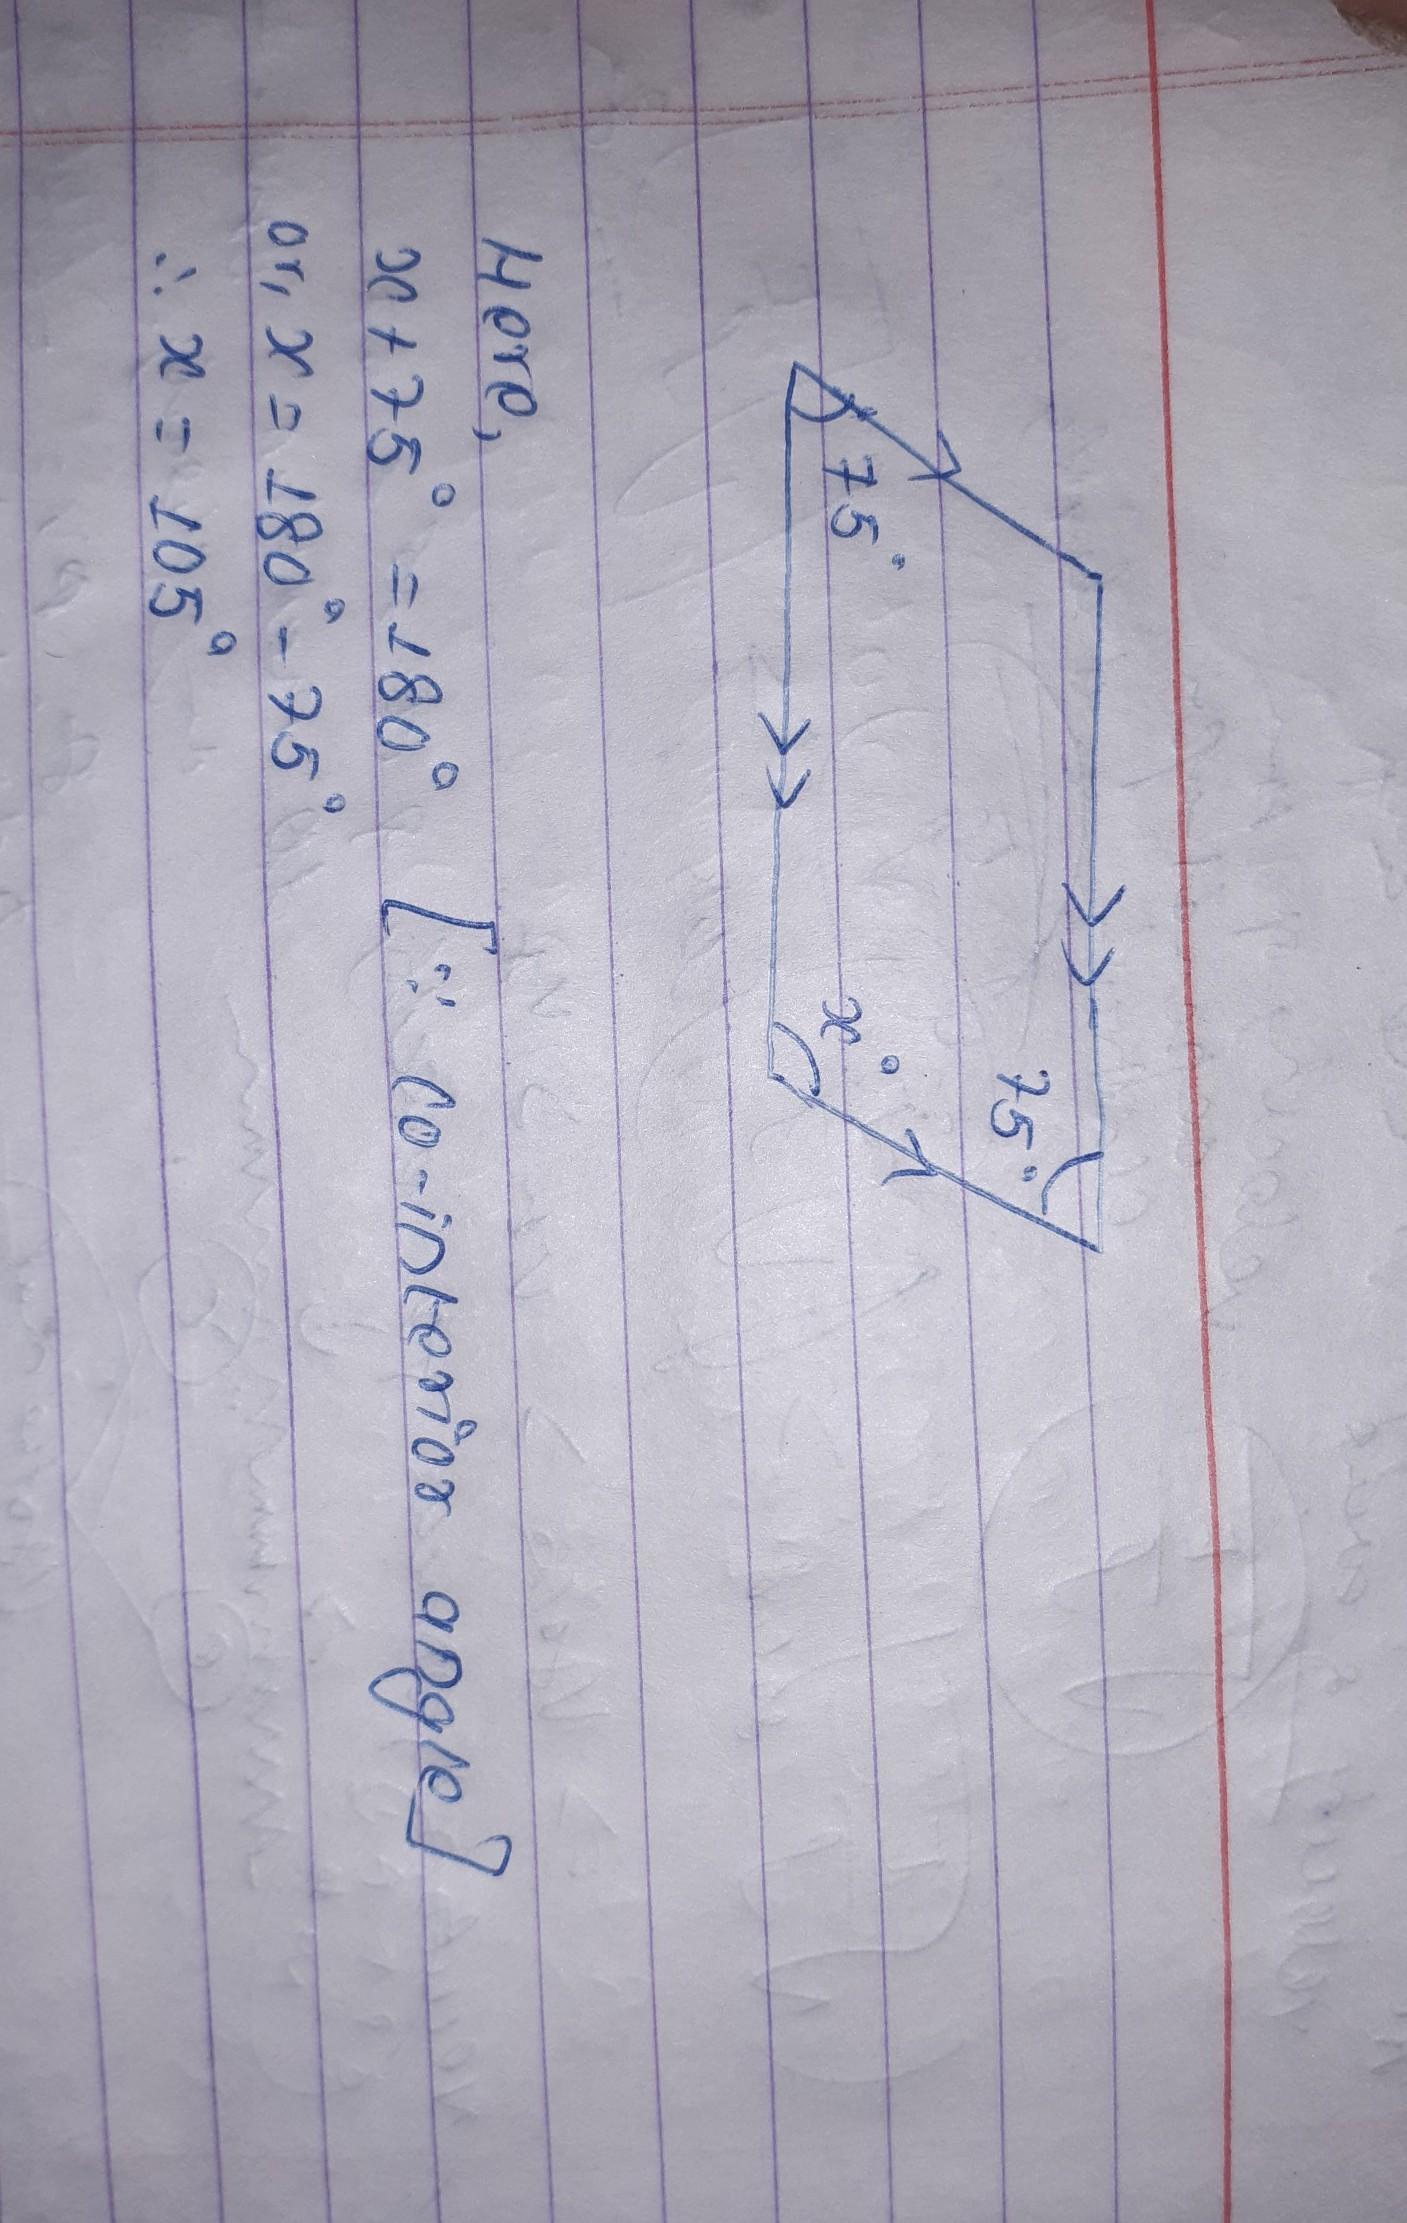 75°
75°
x°
Here,
x + 75° = 180° [∵ Co-interior angle]
or, x = 180° - 75°
∴ x = 105°